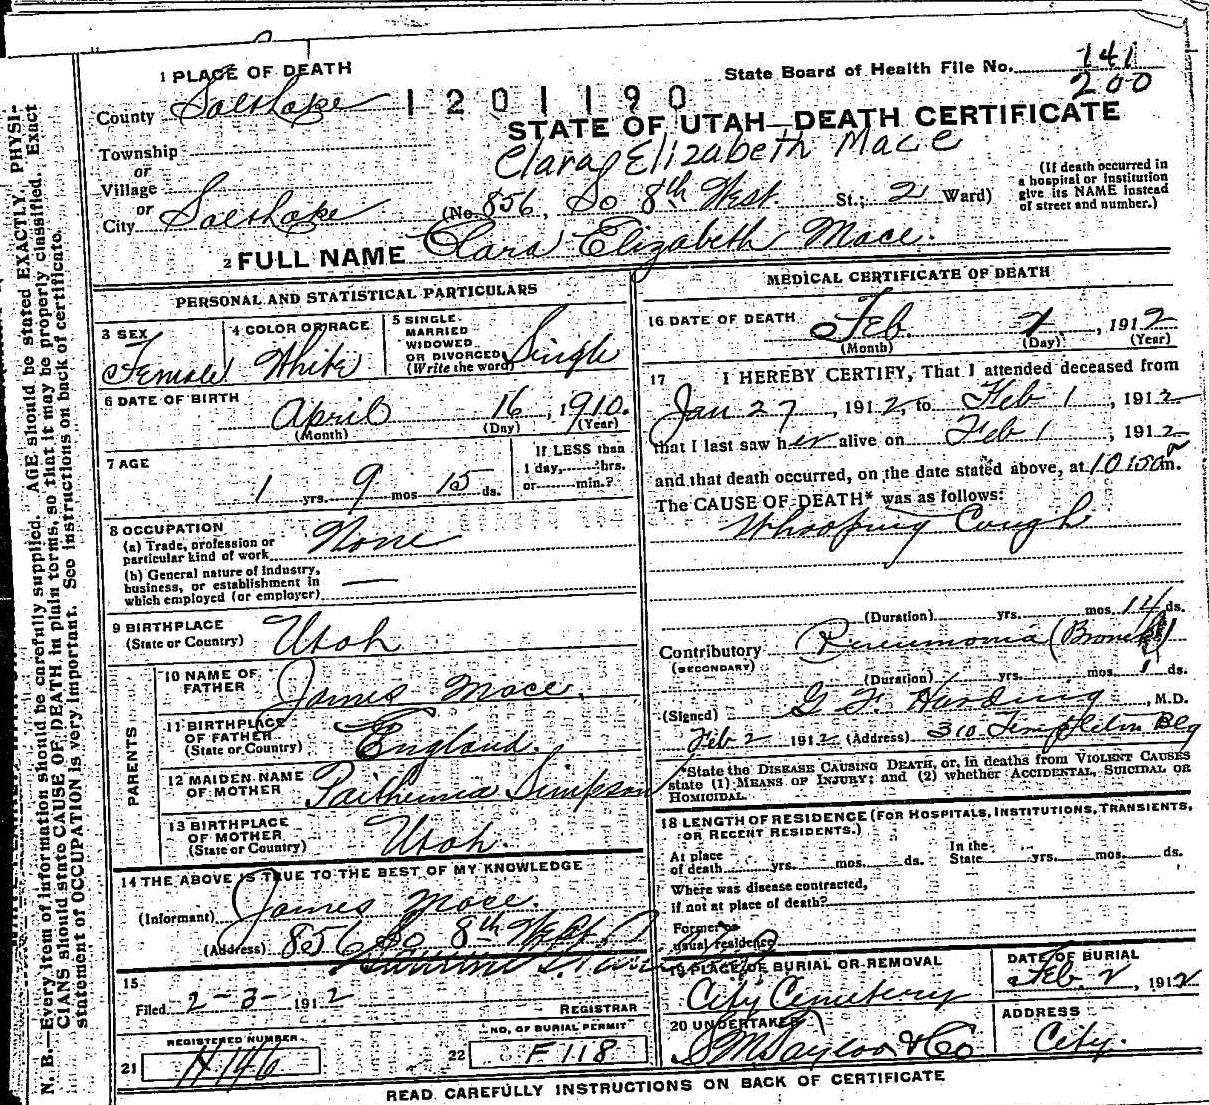 1 PLACE OF DEATH
State Board of Health File No. 141
200
County Salt Lake 1201190
STATE OF UTAH—DEATH CERTIFICATE
Clara Elizabeth Mace
Township
or
Village
or
City Salt Lake (No. 856, So 8th West. St.; 2 Ward)
(If death occurred in
a hospital or institution
give its NAME instead
of street and number.)
2 FULL NAME Clara Elizabeth Mace.
PERSONAL AND STATISTICAL PARTICULARS
3 SEX
Female
4 COLOR OR RACE
White
5 SINGLE
MARRIED
WIDOWED
OR DIVORCED
(Write the word) Single
6 DATE OF BIRTH
April 16, 1910.
(Month) (Day) (Year)
7 AGE
1 yrs. 9 mos 15 ds.
If LESS than
1 day, hrs.
or min.?
8 OCCUPATION
(a) Trade, profession or
particular kind of work None
(b) General nature of industry,
business, or establishment in
which employed (or employer) —
9 BIRTHPLACE
(State or Country) Utah
PARENTS
10 NAME OF
FATHER James Mace.
11 BIRTHPLACE
OF FATHER
(State or Country) England.
12 MAIDEN NAME
OF MOTHER Simpson
13 BIRTHPLACE
OF MOTHER
(State or Country) Utah.
14 THE ABOVE IS TRUE TO THE BEST OF MY KNOWLEDGE
(Informant) James Mace.
(Address) 856 So 8th West.
15
Filed 2-3- 1912
REGISTRAR
REGISTERED NUMBER
21 H 146
NO. OF BURIAL PERMIT
22 F 118
MEDICAL CERTIFICATE OF DEATH
16 DATE OF DEATH
Feb. 1, 1912
(Month) (Day) (Year)
17 I HEREBY CERTIFY, That I attended deceased from
Jan 27, 1912, to Feb 1, 1912
that I last saw her alive on Feb 1, 1912
and that death occurred, on the date stated above, at m.
The CAUSE OF DEATH* was as follows:
Whooping Cough
(Duration) yrs. mos. 14 ds.
Contributory Pneumonia
(SECONDARY)
(Duration) yrs. mos. 1 ds.
(Signed) G F Harding, M.D.
Feb 2 1912 (Address) 310 Templeton Blg
*State the DISEASE CAUSING DEATH, or, in deaths from VIOLENT CAUSES
state (1) MEANS OF INJURY; and (2) whether ACCIDENTAL, SUICIDAL OR
HOMICIDAL.
18 LENGTH OF RESIDENCE (FOR HOSPITALS, INSTITUTIONS, TRANSIENTS,
OR RECENT RESIDENTS.)
At place
of death yrs. mos. ds.
In the
State yrs. mos. ds.
Where was disease contracted,
if not at place of death?
Former or
usual residence
19 PLACE OF BURIAL OR REMOVAL
City Cemetery
DATE OF BURIAL
Feb. 2, 1912
20 UNDERTAKER
S M Taylor & Co
ADDRESS
City.
READ CAREFULLY INSTRUCTIONS ON BACK OF CERTIFICATE
N. B.—Every item of information should be carefully supplied. AGE should be stated EXACTLY, PHYSI-
CIANS should state CAUSE OF DEATH in plain terms, so that it may be properly classified. Exact
statement of OCCUPATION is very important. See instructions on back of certificate.